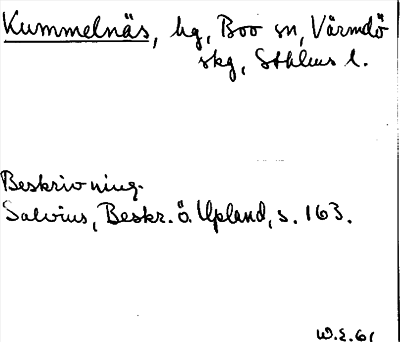 Kummelnäs, hg, Boo sn, Värmdö
skg, Sthlms l.
Beskrivning.
Salvius, Beskr. ö. Upland, s. 163.
W.E. 61